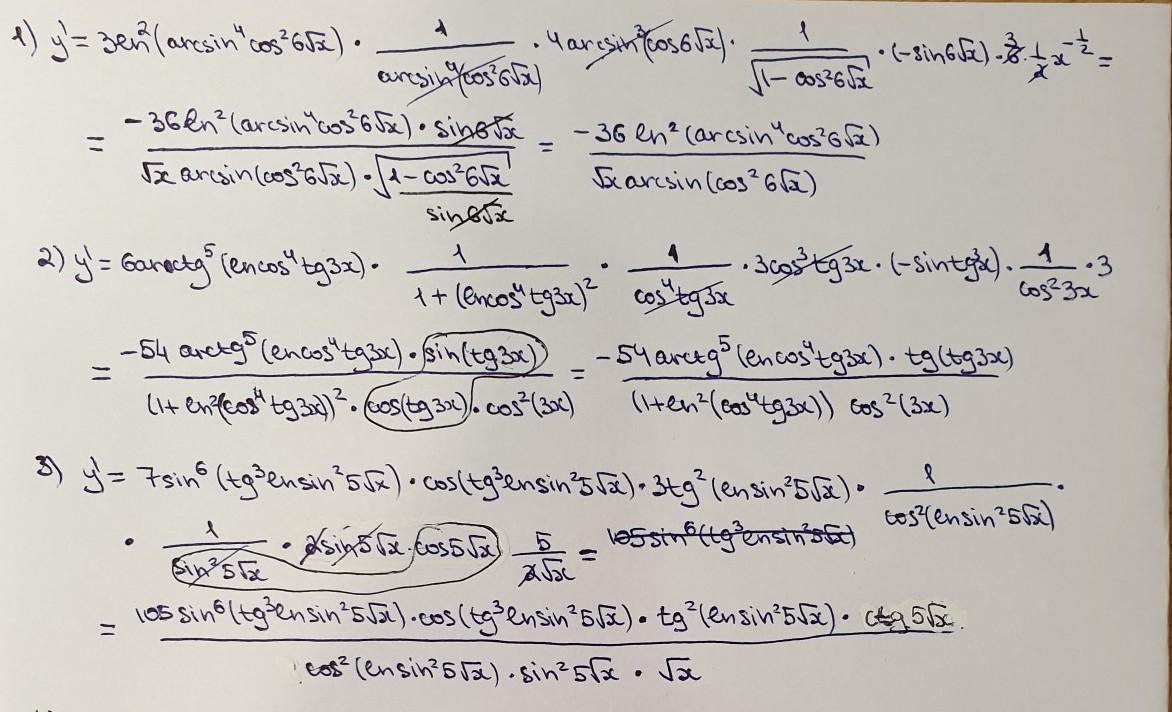 1) y' = 3ln²(arcsin⁴cos²6√x) · 1/(arcsin⁴(cos²6√x)) · 4arcsin³(cos6√x) · 1/√(1-cos²6√x) · (-sin6√x) · 3 6 · 1/2 x^(-1/2) =
= (-36ln²(arcsin⁴cos²6√x) · sin6√x)/(√x arcsin(cos²6√x) · √(1-cos²6√x)) = (-36 ln²(arcsin⁴cos²6√x))/(√x arcsin(cos²6√x))
sin6√x
2) y' = 6arctg⁵(lncos⁴tg3x) · 1/(1+(lncos⁴tg3x)²) · 1/(cos⁴tg3x) · 3cos³tg3x · (-sintg3x) · 1/(cos²3x) · 3
= (-54 arctg⁵(lncos⁴tg3x) · sin(tg3x))/((1+ln²(cos⁴tg3x))² · cos(tg3x) · cos²(3x)) = (-54arctg⁵(lncos⁴tg3x) · tg(tg3x))/((1+ln²(cos⁴tg3x)) cos²(3x))
3) y' = 7sin⁶(tg³lnsin²5√x) · cos(tg³lnsin²5√x) · 3tg²(lnsin²5√x) · 1/(cos²(lnsin²5√x)) ·
· 1/(sin²5√x) · 2sin5√x · cos5√x 5/(2√x) = 105sin⁶(tg³lnsin²5√x)
= (105 sin⁶(tg³lnsin²5√x) · cos(tg³lnsin²5√x) · tg²(lnsin²5√x) · ctg5√x)/(cos²(lnsin²5√x) · sin²5√x · √x)